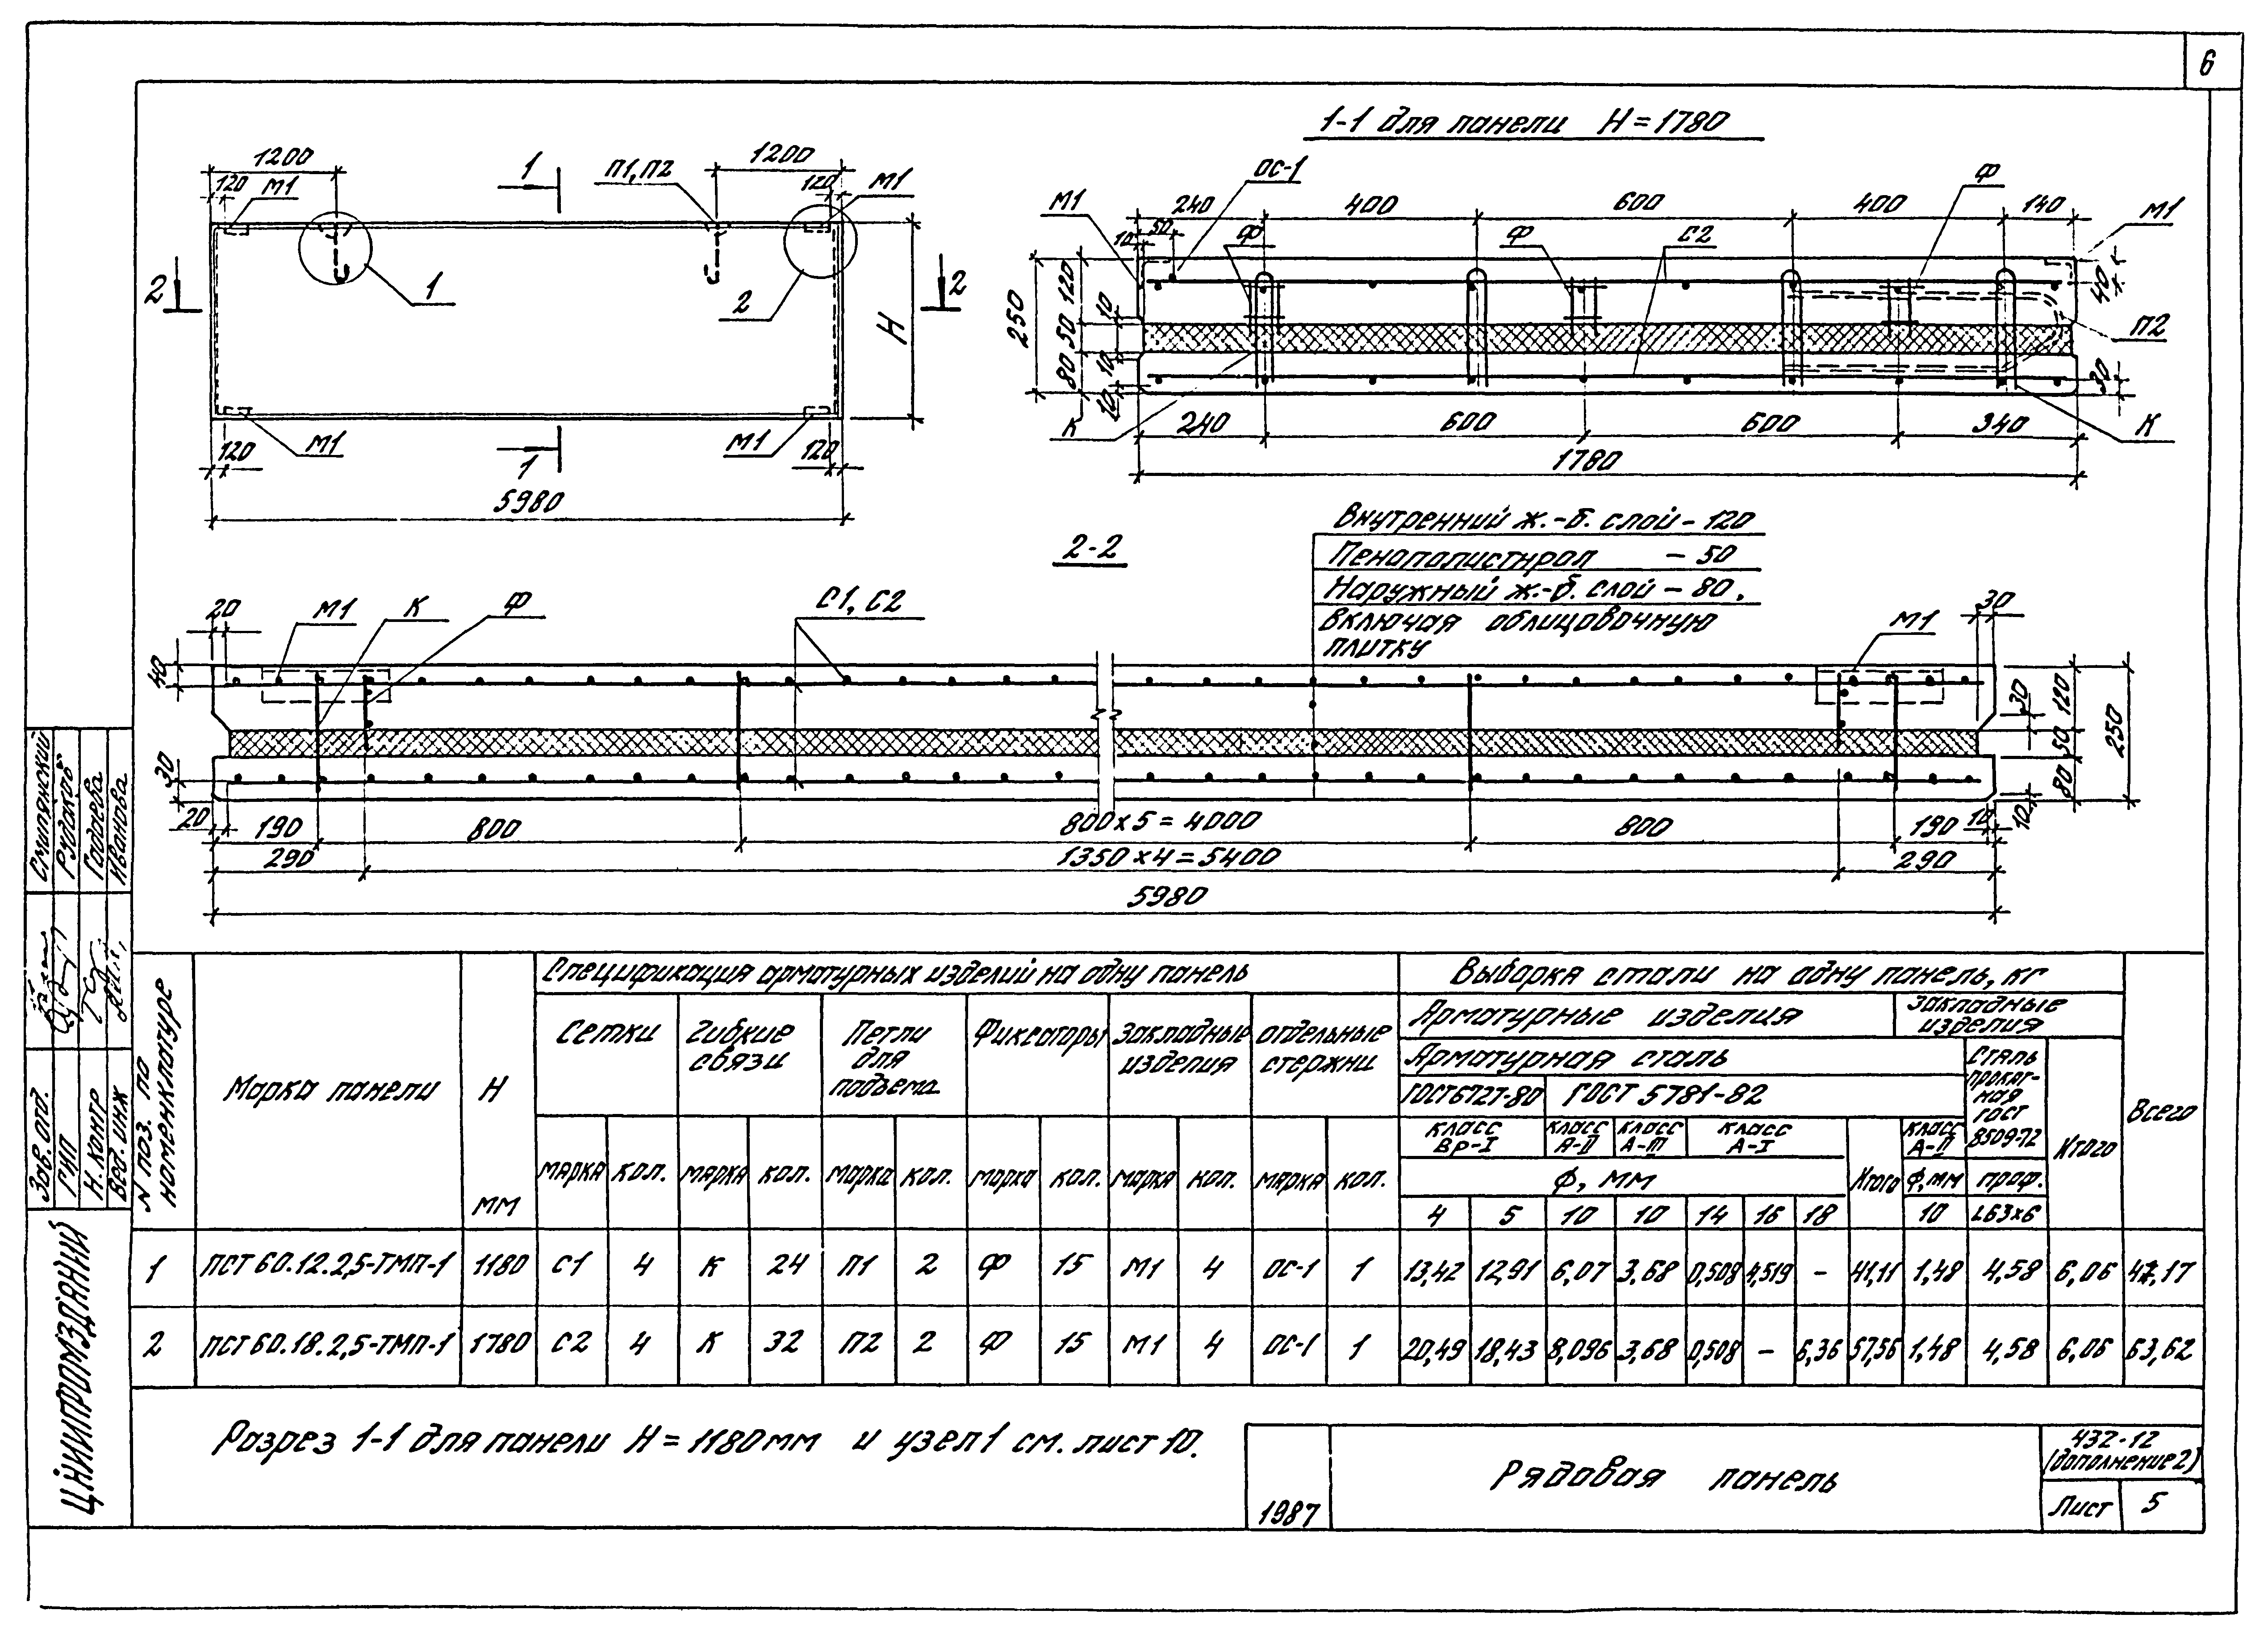 6
1-1 для панели H=1780
1200
1
П1,П2
1200
120
М1
120
М1
2
1
2
2
H
М1
М1
120
1
120
5980
ОС-1
М1
240
400
600
400
140
Ф
М1
10
50
Ф
Ф
С2
250
120
50
80
10
10
10
40
П2
30
К
К
240
600
600
340
1780
Внутренний ж.-б. слой - 120
Пенополистирол - 50
Наружный ж.-б. слой - 80,
включая облицовочную
плитку
2-2
20
М1
К
Ф
С1, С2
М1
30
40
30
30
10
120
50
80
250
20
190
800
800×5=4000
800
190
10
290
1350×4=5400
290
5980
N поз. по номенклатуре
Марка панели
H
мм
Спецификация арматурных изделий на одну панель
Выборка стали на одну панель, кг
Сетки
Гибкие связи
Петли для подъема
Фиксаторы
Закладные изделия
Отдельные стержни
Арматурные изделия
Закладные изделия
Арматурная сталь
Сталь прокатная ГОСТ 8509-72
Итого
Всего
ГОСТ 6727-80
ГОСТ 5781-82
класс Вр-I
класс А-II
класс А-III
класс А-I
Итого
класс А-II
марка кол. марка кол. марка кол. марка кол. марка кол. марка кол.
Ф, мм
Ф, мм
проф.
4 5 10 10 14 16 18 10 L63×6
1 ПСТ 60.12.2,5-ТМП-1 1180 С1 4 К 24 П1 2 Ф 15 М1 4 ОС-1 1 13,42 12,91 6,07 3,68 0,508 4,519 – 41,11 1,48 4,58 6,06 47,17
2 ПСТ 60.18.2,5-ТМП-1 1780 С2 4 К 32 П2 2 Ф 15 М1 4 ОС-1 1 20,49 18,43 8,096 3,68 0,508 – 6,36 57,56 1,48 4,58 6,06 63,62
Разрез 1-1 для панели H=1180мм и узел 1 см. лист 10.
1987
Рядовая панель
432-12
(дополнение 2)
Лист 5
Зав. отд. Смилянский
ГИП Рудаков
Н. контр Гадаева
Вед. инж Иванова
ЦНИИПРОМЗДАНИЙ